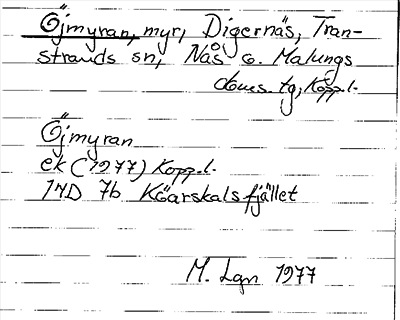 Öjmyran, myr, Digernäs, Tran-
strands sn, Nås o. Malungs
doms. tg, Kopp.l.
Öjmyran
ek (1977) Kopp.l.
17D 7b Köarskalsfjället
M. Lgn 1977